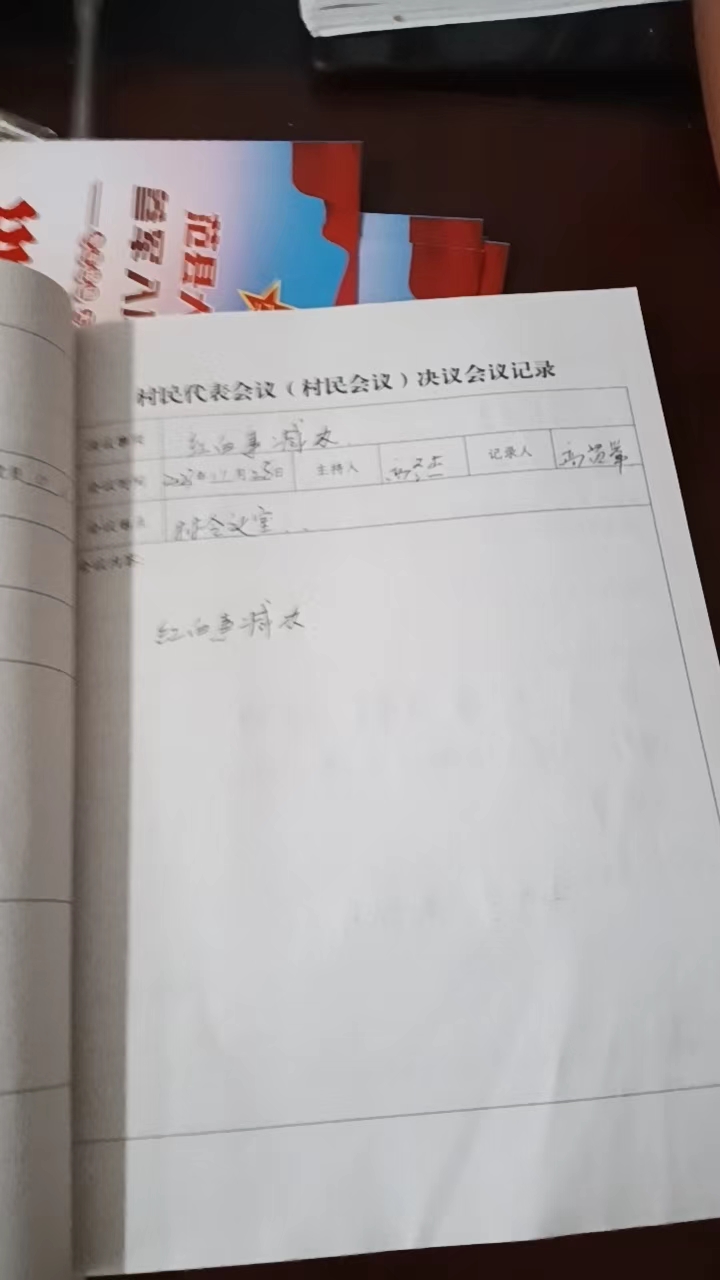 范县人
省军人
村民代表会议（村民会议）决议会议记录
会议事项 红白事减办
会议时间 年11月25日 主持人 记录人
会议地点 村会议室
会议内容：
红白事减办